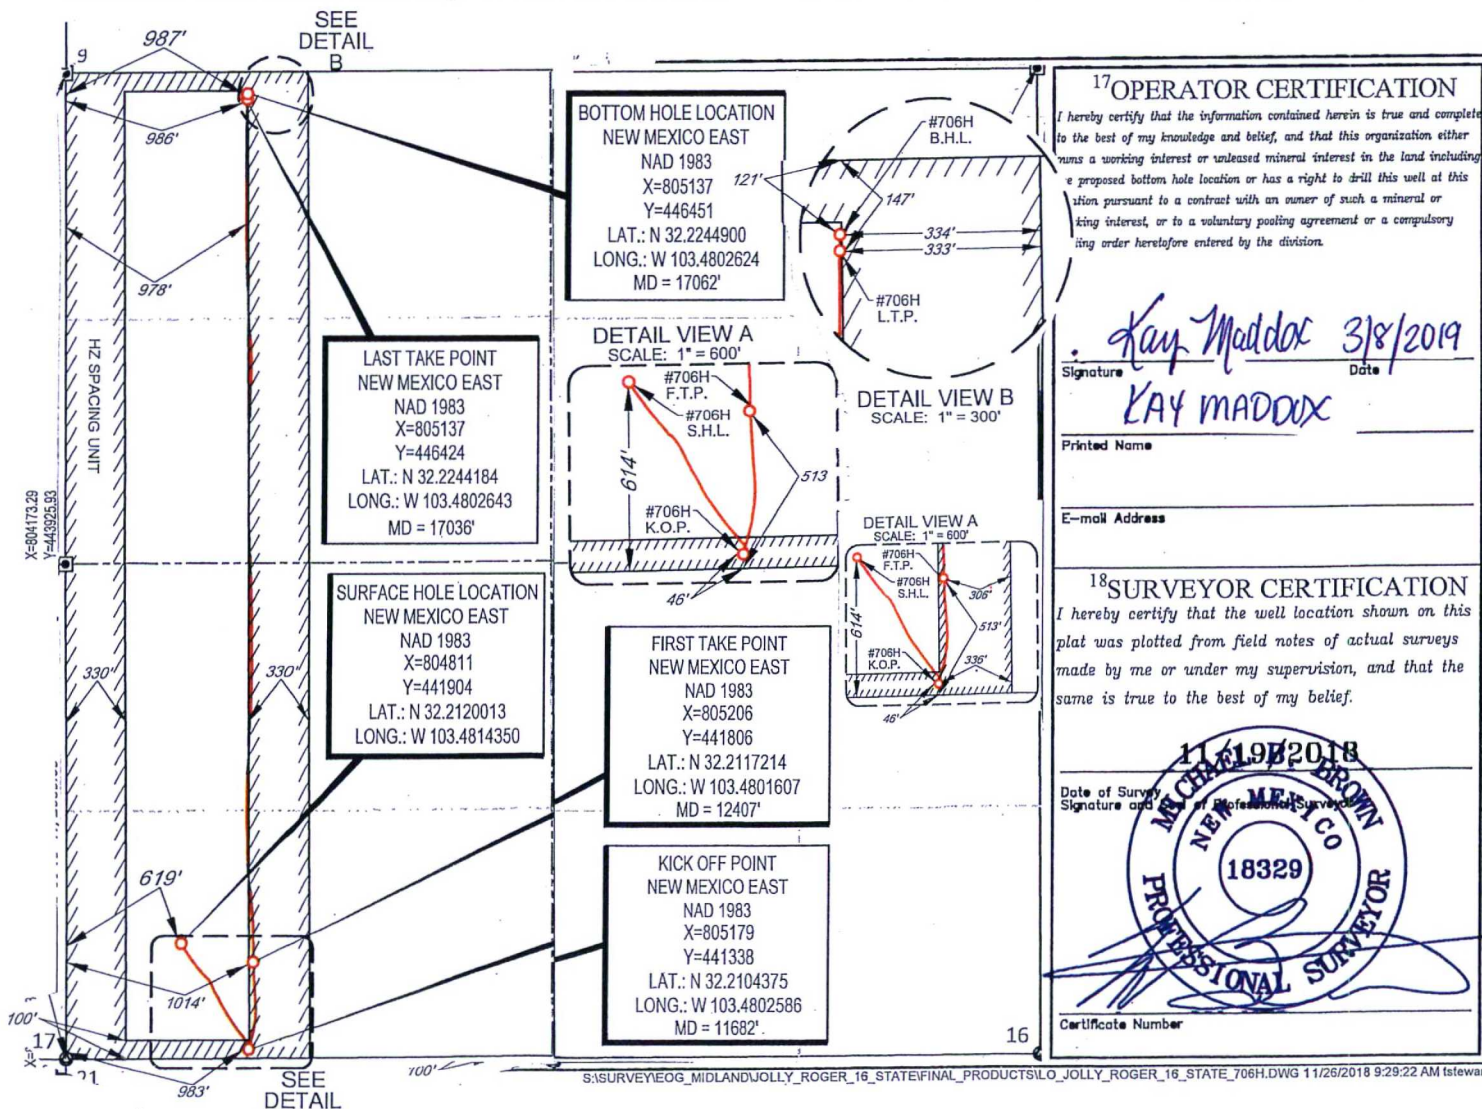 987'
9
SEE
DETAIL
B
986'
978'
HZ SPACING UNIT
X=804173.29
Y=443925.93
330'
330'
619'
1014'
100'
17
21
983'
SEE
DETAIL
100'
16
BOTTOM HOLE LOCATION
NEW MEXICO EAST
NAD 1983
X=805137
Y=446451
LAT.: N 32.2244900
LONG.: W 103.4802624
MD = 17062'
LAST TAKE POINT
NEW MEXICO EAST
NAD 1983
X=805137
Y=446424
LAT.: N 32.2244184
LONG.: W 103.4802643
MD = 17036'
SURFACE HOLE LOCATION
NEW MEXICO EAST
NAD 1983
X=804811
Y=441904
LAT.: N 32.2120013
LONG.: W 103.4814350
FIRST TAKE POINT
NEW MEXICO EAST
NAD 1983
X=805206
Y=441806
LAT.: N 32.2117214
LONG.: W 103.4801607
MD = 12407'
KICK OFF POINT
NEW MEXICO EAST
NAD 1983
X=805179
Y=441338
LAT.: N 32.2104375
LONG.: W 103.4802586
MD = 11682'
#706H
B.H.L.
121'
147'
334'
333'
#706H
L.T.P.
DETAIL VIEW B
SCALE: 1" = 300'
DETAIL VIEW A
SCALE: 1" = 600'
#706H
F.T.P.
#706H
S.H.L.
614'
513
#706H
K.O.P.
46'
DETAIL VIEW A
SCALE: 1" = 600'
#706H
F.T.P.
#706H
S.H.L.
306'
513'
614'
#706H
K.O.P.
336'
46'
17OPERATOR CERTIFICATION
I hereby certify that the information contained herein is true and complete
to the best of my knowledge and belief, and that this organization either
a working interest or unleased mineral interest in the land including
proposed bottom hole location or has a right to drill this well at this
pursuant to a contract with an owner of such a mineral or
interest, or to a voluntary pooling agreement or a compulsory
order heretofore entered by the division.
Kay Maddox 3/8/2019
Signature Date
KAY MADDOX
Printed Name
E-mail Address
18SURVEYOR CERTIFICATION
I hereby certify that the well location shown on this
plat was plotted from field notes of actual surveys
made by me or under my supervision, and that the
same is true to the best of my belief.
11/19/2018
Date of Survey
Signature and of Professional Surveyor
MICHAEL B. BROWN
NEW MEXICO
18329
PROFESSIONAL SURVEYOR
Certificate Number
S:\SURVEY\EOG_MIDLAND\JOLLY_ROGER_16_STATE\FINAL_PRODUCTS\LO_JOLLY_ROGER_16_STATE_706H.DWG 11/26/2018 9:29:22 AM